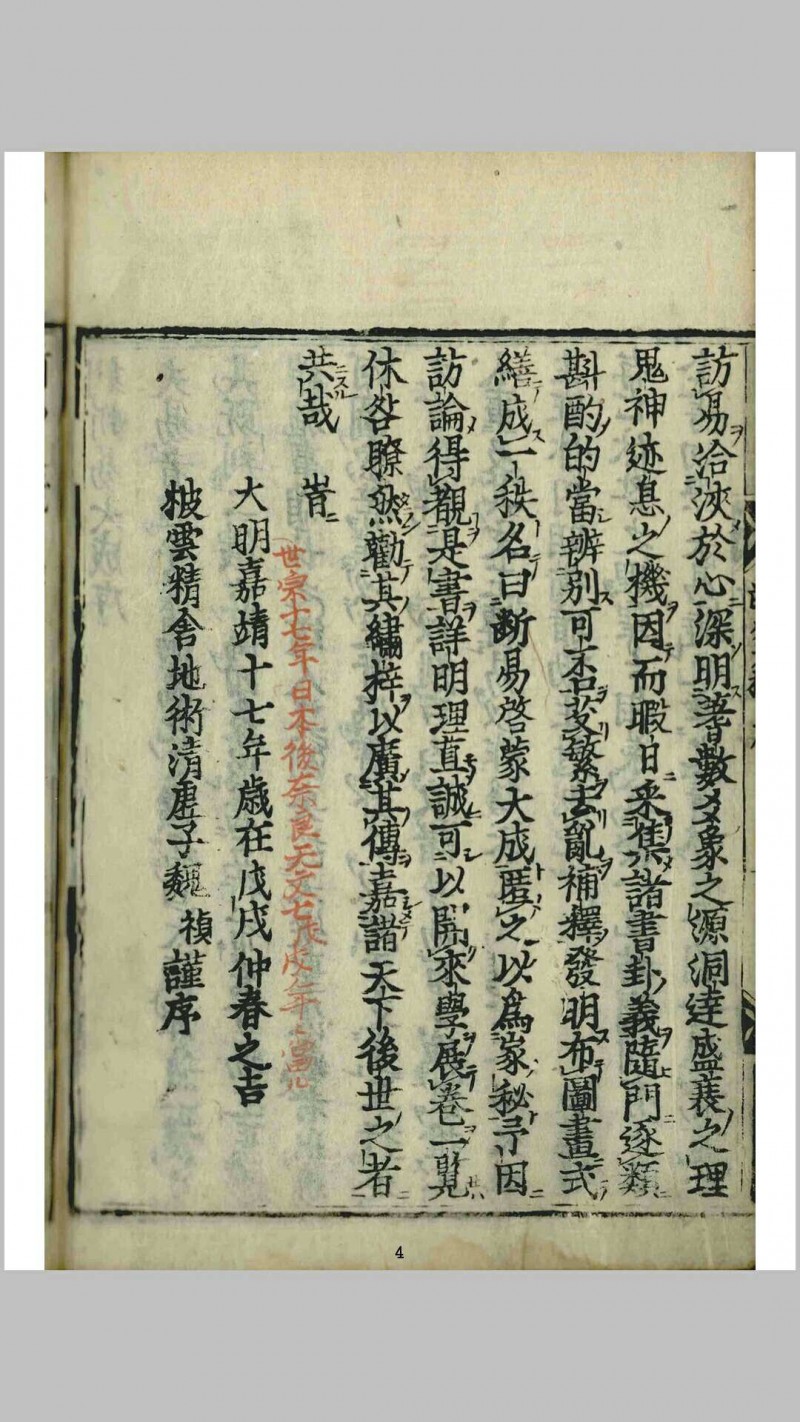 訪易洽浹於心深明蓍數爻象之源洞達盛衰之理
鬼神迹息之機因而暇日采集諸書卦義隨門逐類
斟酌的當辨别可否芟繁去亂補釋發明布圖畫式
繕成一秩名曰断易啓蒙大成匿之以爲家秘予因
訪論得觀是書詳明理直誠可以開來學展卷一覧
休咎瞭然勸其繡梓以廣其傳嘉諸天下後世之者
共哉 旹
世宗十七年日本後奈良天文七戊戌年ニ當ル
大明嘉靖十七年歳在戊戌仲春之吉
披雲精舎地術清虚子魏 禎謹序
4